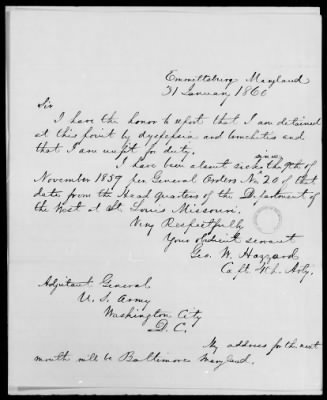 Emmittsburg Maryland
31 January 1860
Sir
I have the honor to report that I am detained
at this point by dyspepsia and bronchitis and
that I am unfit for duty.
I have been absent since the 9th of
November 1859 per General Orders No. 20 of that
date from the Head Quarters of the Department of
the West at St. Louis Missouri.
Very Respectfully
Your obedient servant
Geo. W. Hazzard
Capt. 4th Arty.
Adjutant General
U. S. Army
Washington City
D. C.
My address for the next
month will be Baltimore Maryland.